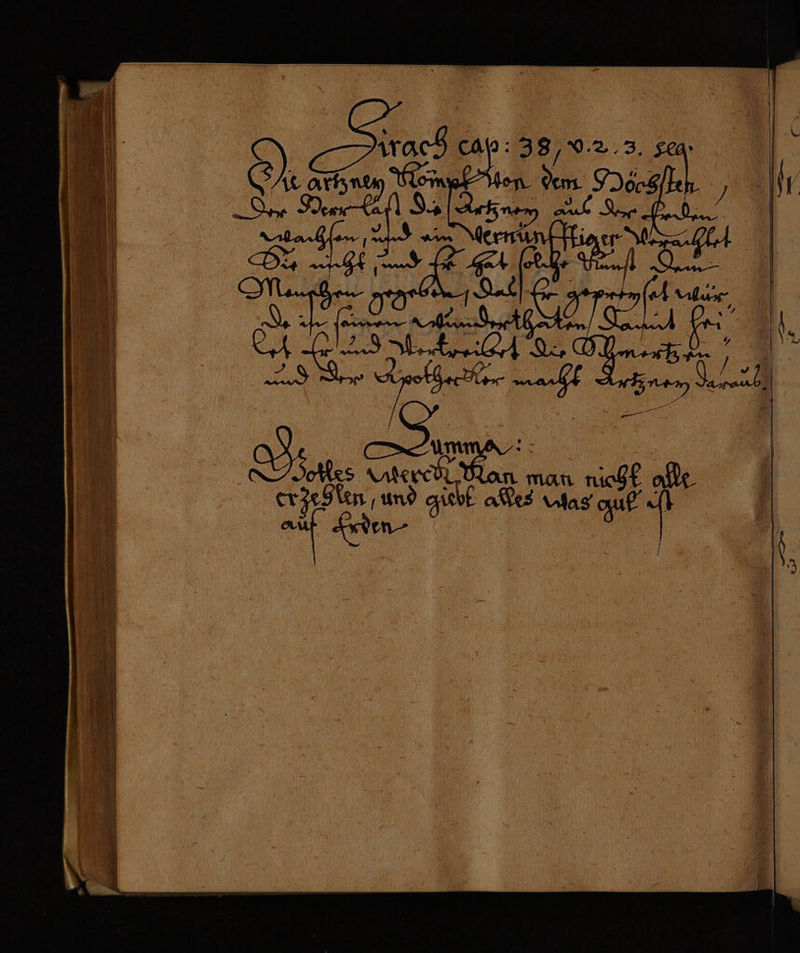 Sirach cap: 38, v. 2. 3. seq.
Die artzney kompt von dem Höchsten,
Der Herr läst die Artzney aus der Erden
wachsen, und ein Vernünfftiger Verachtet
Die nicht, und Er hat solche Kunst Dem
Menschen gegeben, Das Er gepreyset würde
In seinen wunderthaten, Damit
Er und Vertreibet Die Schmertzen,
und Der Apothecker macht Artzney daraus.
Summa:
Gottes werck kan man nicht alle
erzehlen, und giebt alles was gut ist
auf Erden